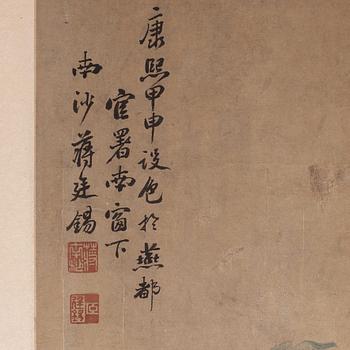 康熙甲申設色於燕都
官署南窗下
南沙蔣廷錫